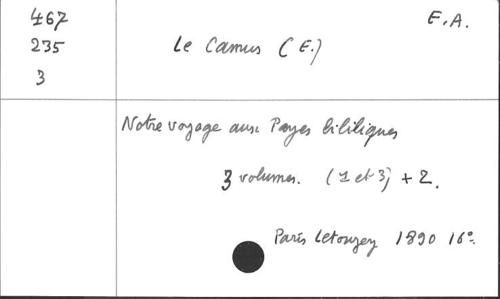 467
E.A.
235
Le Camus (E.)
3
Notre voyage aux Payes bibliques
3 volumes. (1 et 3) + 2.
Paris Letouzey 1890 16°.